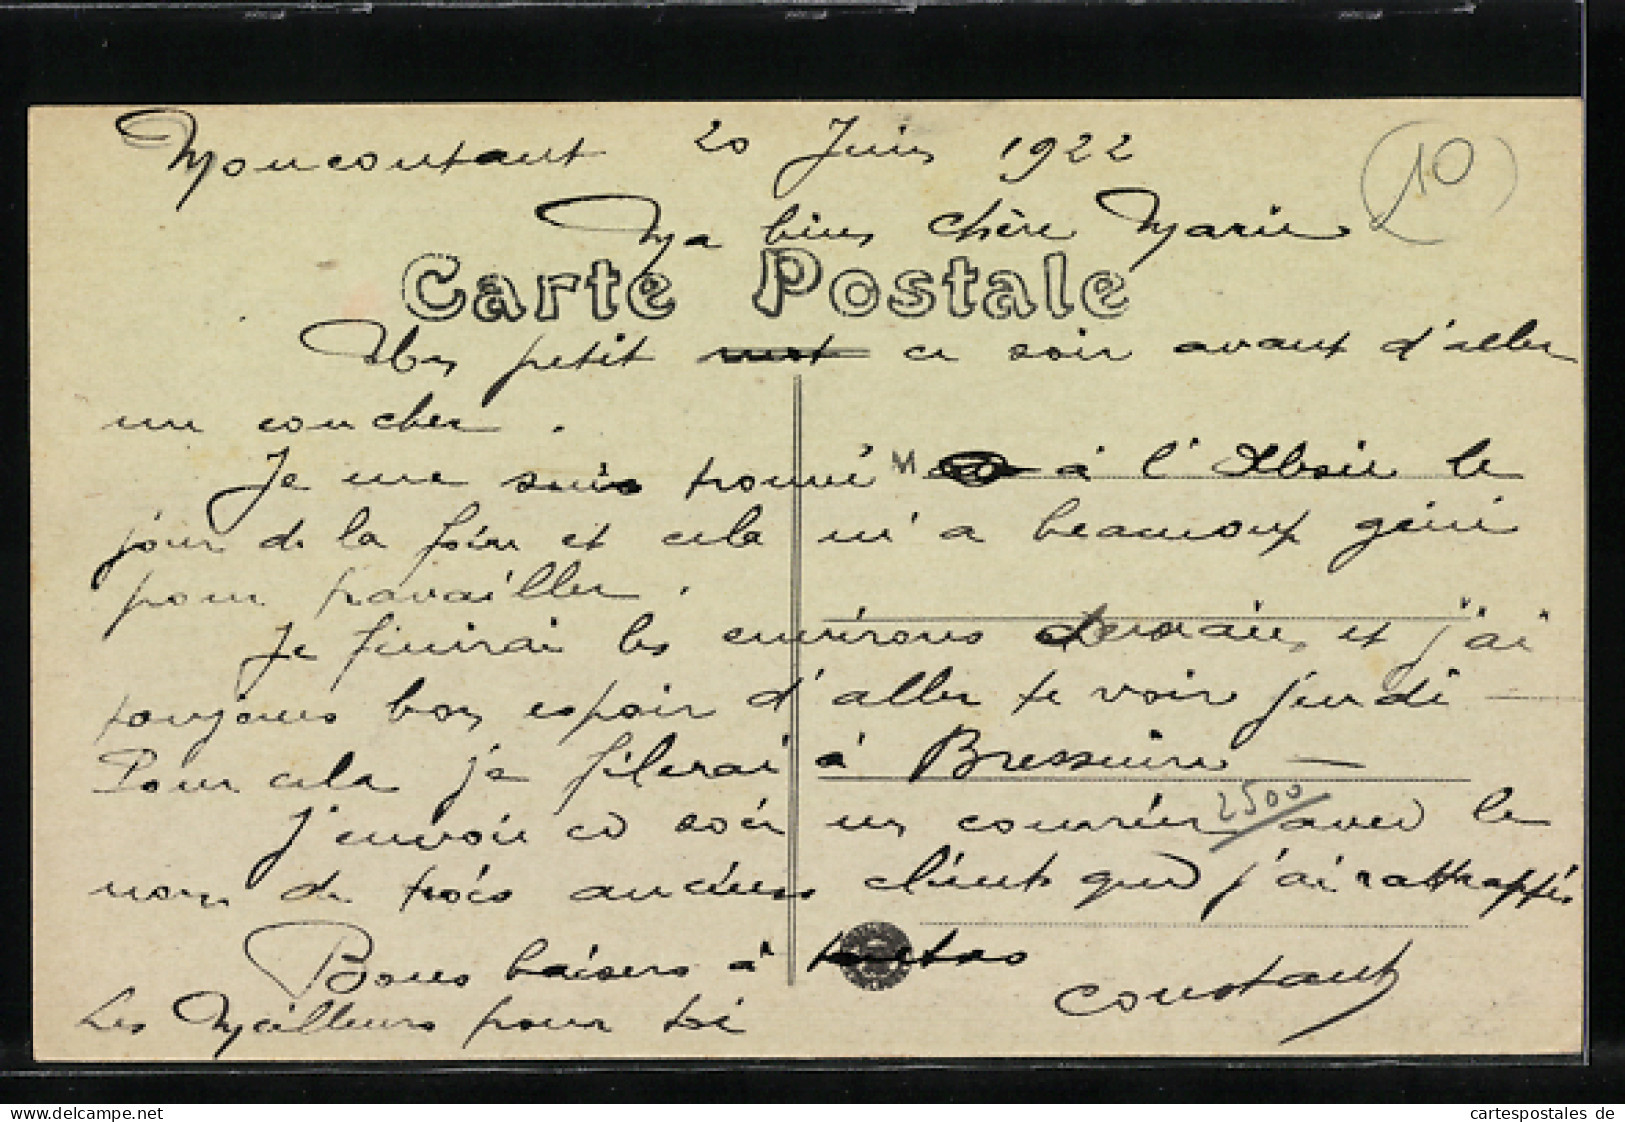 Moncoutant 20 Juin 1922
10
Ma bien chère Marie
Carte Postale
Un petit mot ce soir avant d'aller
me coucher.
Je me suis trouvé M à l'Absie le
jour de la foire et cela m'a beaucoup géné
pour travailler.
Je finirai les environs demain et j'ai
toujours bon espoir d'aller te voir jeudi —
Pour cela je filerai à Bressuire —
2500
J'envoie ce soir un courrier avec le
nom de trois anciens clients que j'ai rattrappés
Bons baisers à toutes
Les Meilleurs pour toi
Constant
Lot-Nr.: 10459612
cartespostales de